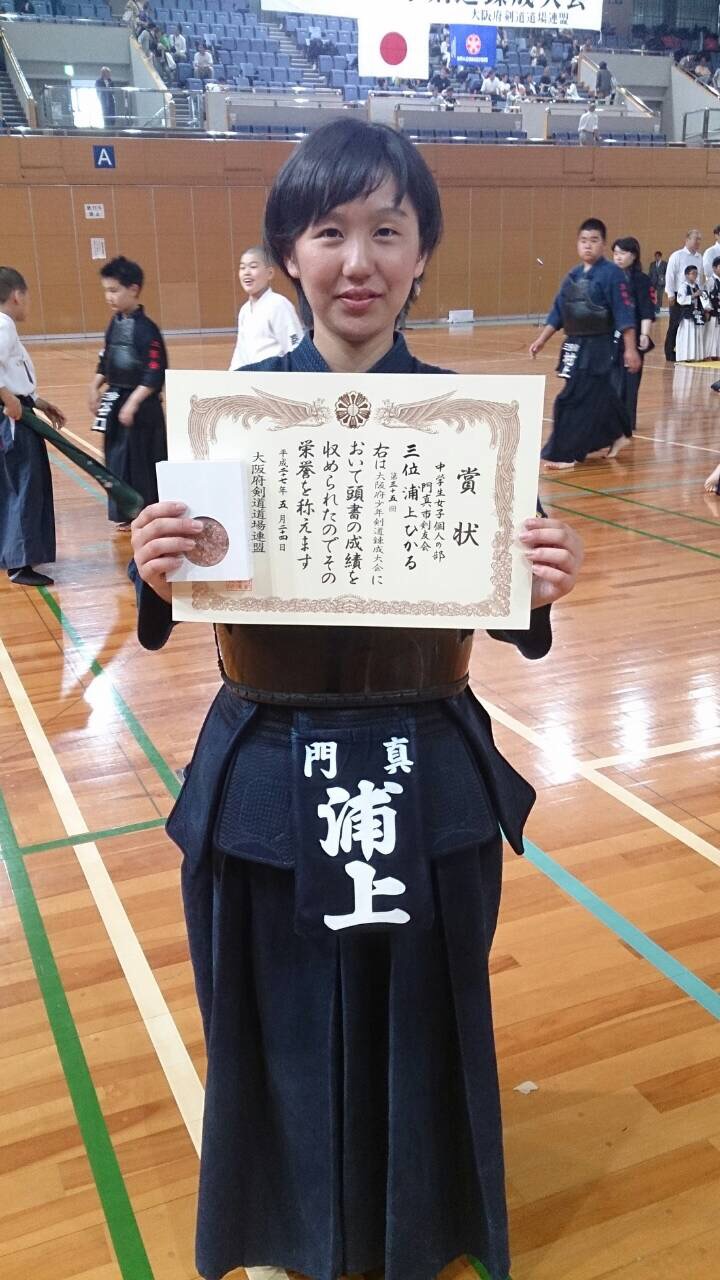 剣道錬成大会
大阪府剣道道場連盟
A
賞状
中学生女子個人の部
門真市剣友会
三位 浦上ひかる
第三十五回
右は大阪府少年剣道錬成大会に
おいて頭書の成績を
収められたのでその
栄誉を称えます
平成二十七年 五月二十四日
大阪府剣道道場連盟
門真
浦上
村上